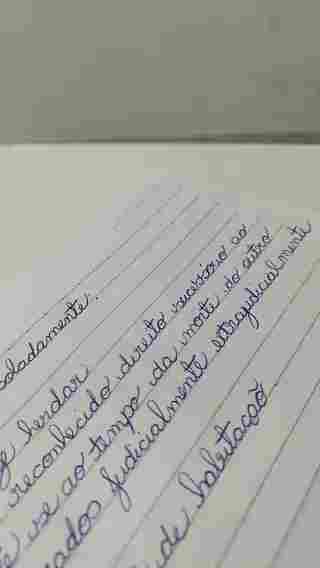 oladamente.
ge herdar
reconhecido direito sucessório ao
é se ao tempo da morte do outro
rados judicialmente, etrajudicialmente
de habitação